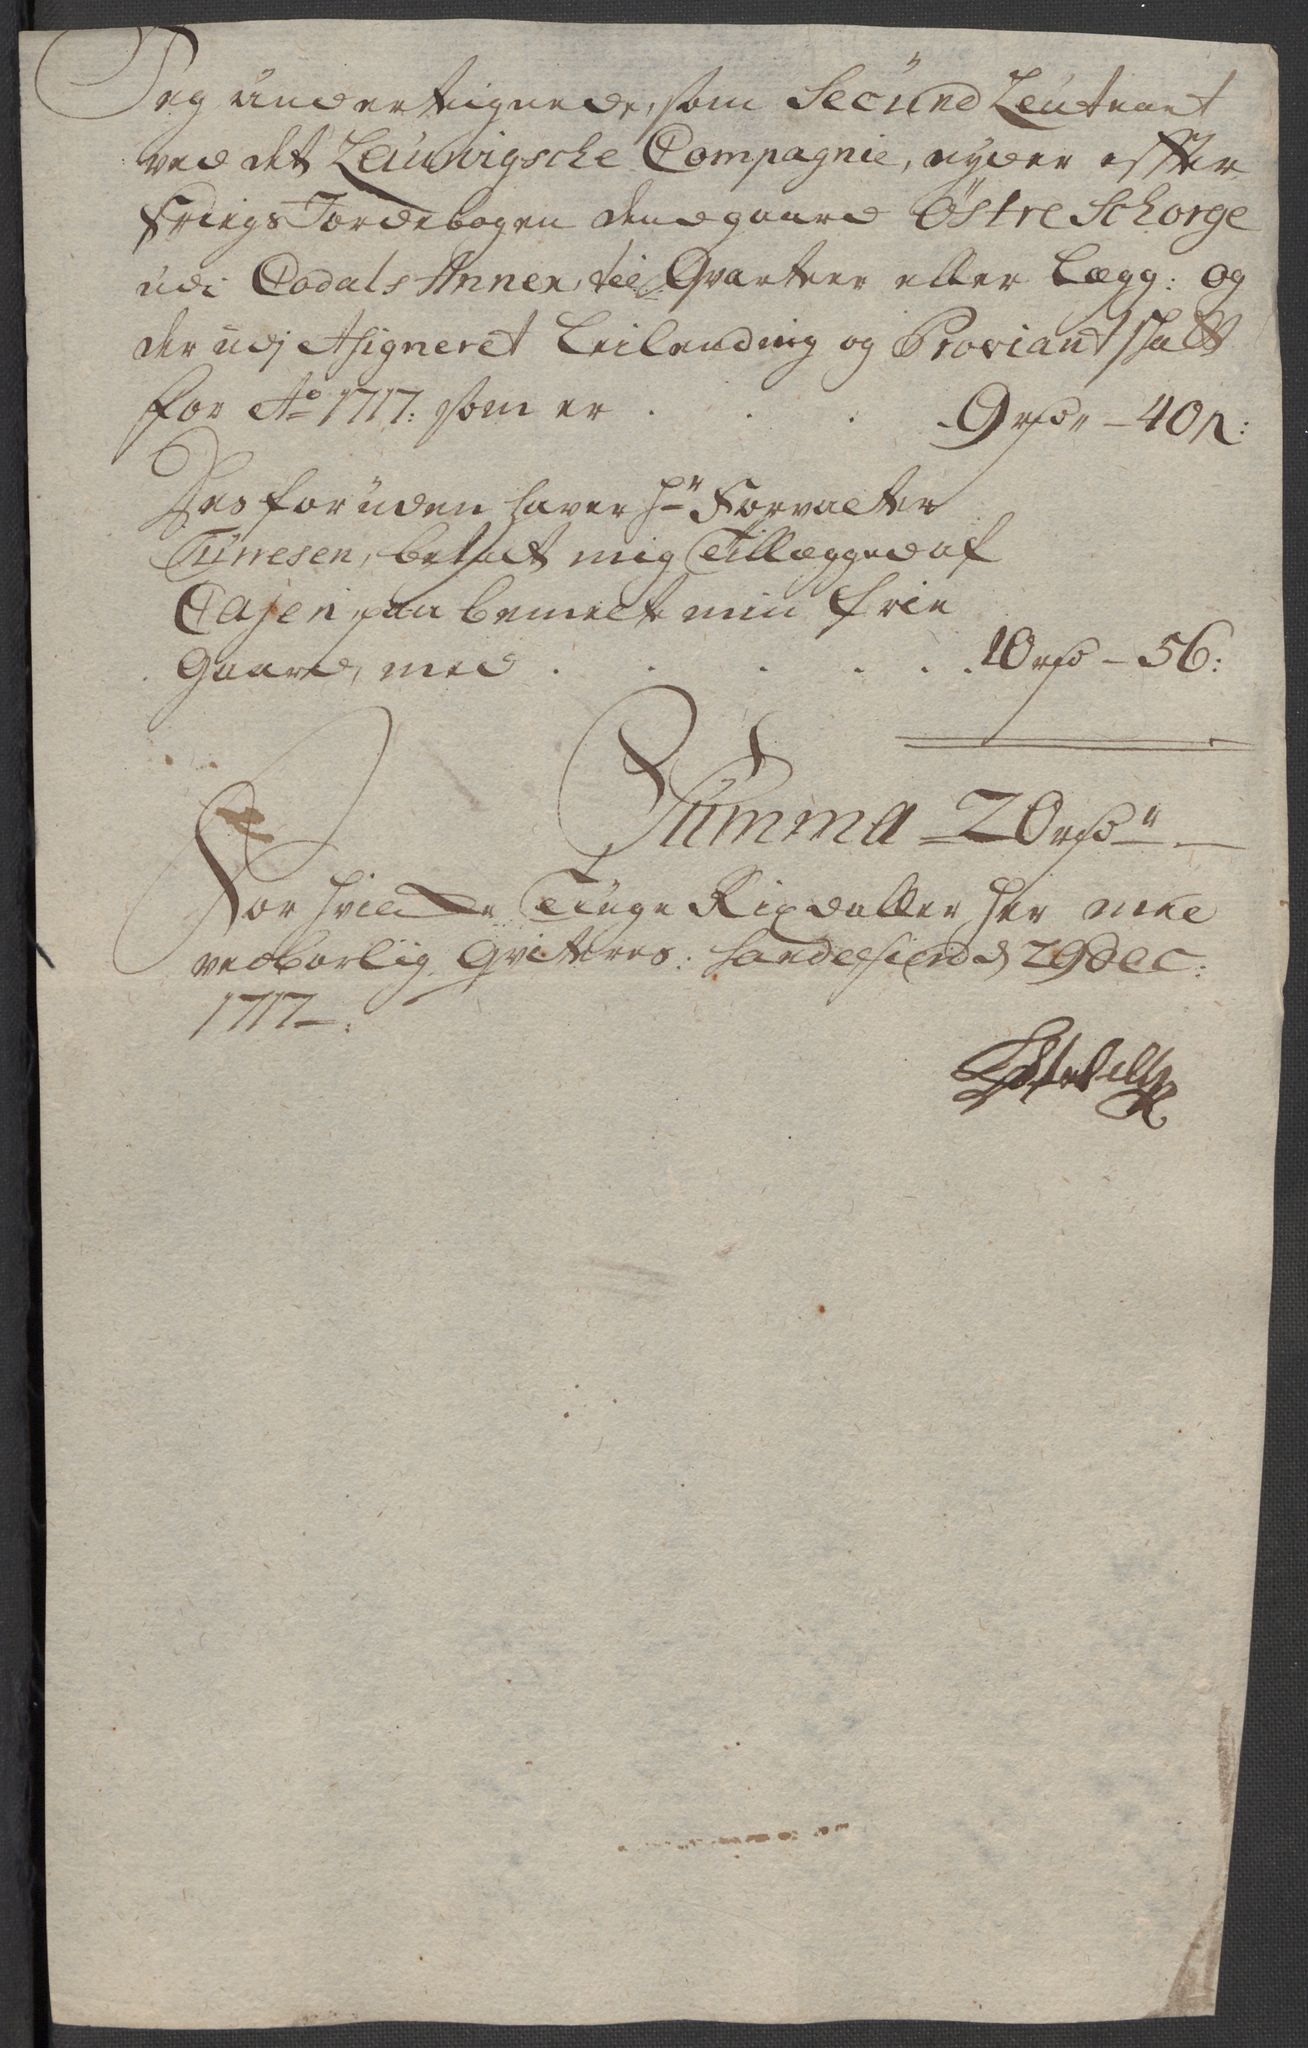 Jeg underteignede, som Secünd Leutnant
ved det Laurwigsche Compagnie, nyder effter
Kriegs Jordebogen dend gaard Östre Schorge
udi Codals Annex, till Qvarteer eller Lægg: og
der udj Asigneret Leilending og Proviant schatt
for Ao 1717: som er . . . 9 rdr – 40 s:
Des foruden haver Hr Forvalter
Türresen, betalt mig Tillægged af
Cassen paa bemelte min frie
Gaard, med . . . . . 10 rdr – 56:
Summa – 20 rdr –
For hvilcke Tiuge Rixdaller her med
vedbørlig Qviteres. Sandefiord d 29 Dec:
1717 –: